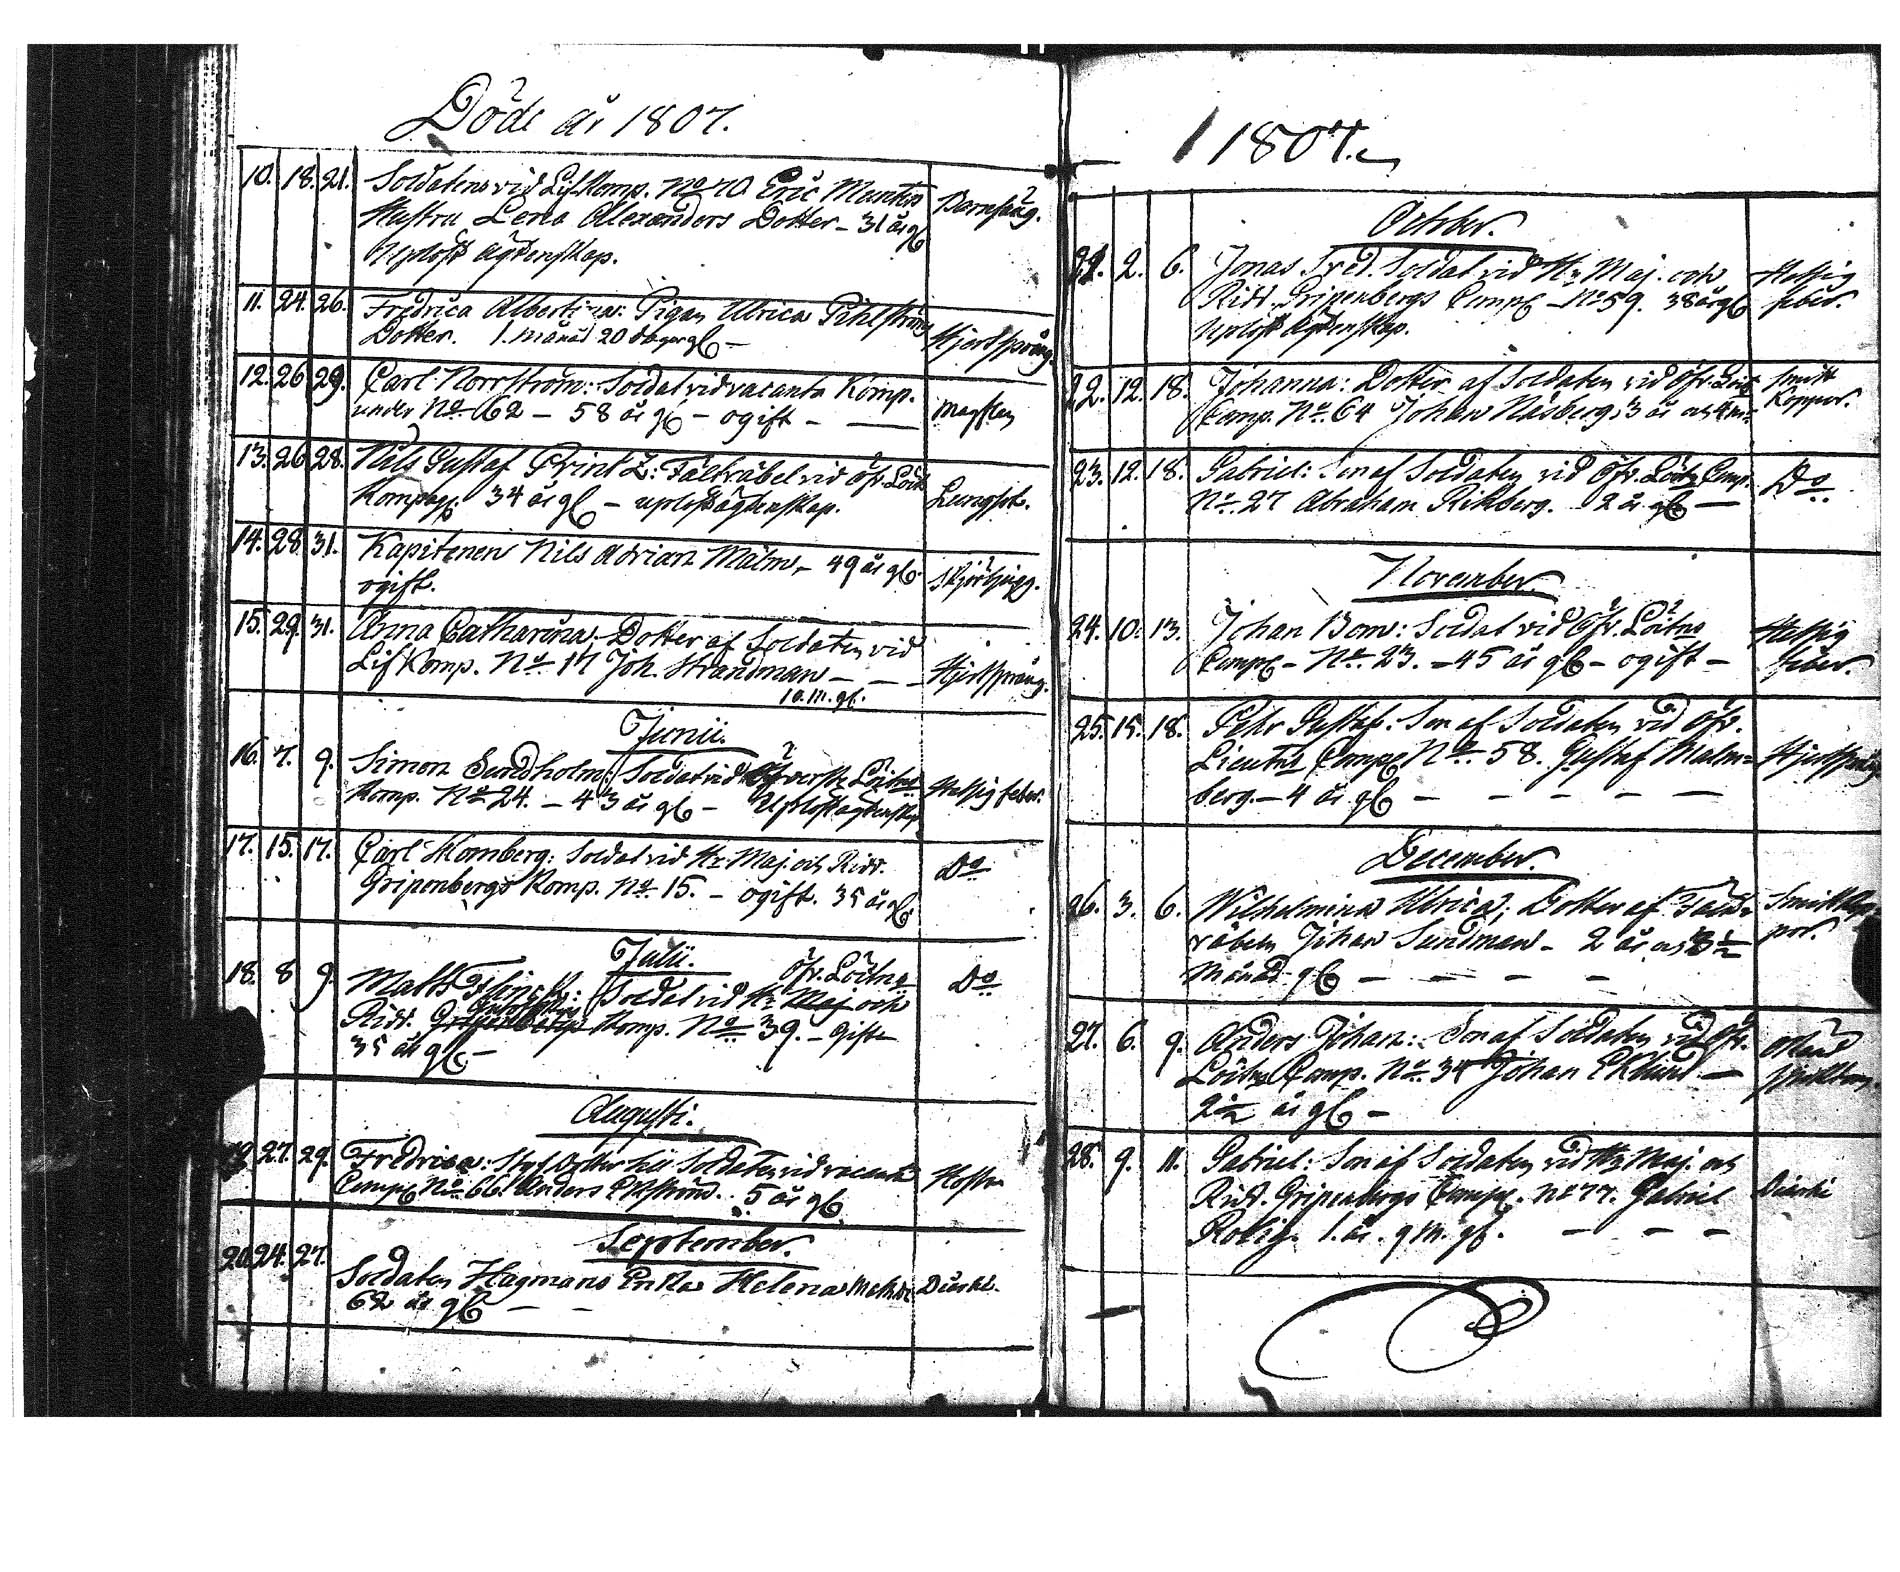 Döde år 1807.
10. 18. 21. Soldatens vid Lif Komp. No 70 Eric Munters Barnsäng.
Hustru Lena Alexanders Dotter - 31 år gl
Uplöst ägtenskap.
11. 24. 26. Fredrica Albertina: Pigan Ulrica Pihlströms Hjertsprång.
Dotter. 1. månad 20 dagar gl -
12. 26 29. Carl Norrström: Soldat vid vacanta Komp.
under No 62 - 58 år gl - ogift -
13. 26 28. Nils Gustaf Printz: Fältväbel vid Öfv. Löit Lungsot.
Kompag: 34 år gl - uplöst ägtenskap.
14. 28. 31. Kapitenen Nils Adrian Malm, - 49 år gl.
ogift.
15. 29. 31. Anna Catharina - Dotter af Soldaten vid
Lif Komp. No 17 Joh. Strandman - - - Hjertsprång.
10. m. gl.
Junii.
16. 7. 9. Simon Sundholm: Soldat vid Öfverste Löitns Hetsig feber.
Komp. No 24. - 43 år gl - Uplöst ägtenskp
17. 15. 17. Carl Homberg: Soldat vid Hr Maj. och Ridd. Do
Gripenbergs Komp. No 15. - ogift. 35 år gl.
Julii.
Öfv. Löitns
18. 8 9. Matts Flinck: Soldat vid Hr Maj och Do
Ridd. Gripenbergs Komp. No 39. - Gifte
35 år gl -
Augusti.
19. 27. 29. Fredrica: Styf Dotter till Soldaten vid vacanta Hosta
Comp No 66. Anders Ekström. 5 år gl.
September.
20. 24. 27. Soldaten Hagmans Enka Helena Diarhé.
62 år gl - -
1807.
October.
21. 2. 6. Jonas Fred. Soldat vid Hr Maj. och Hetsig
Ridd. Gripenbergs Comp - No 59. 38 år gl feber.
Uplöst ägtenskap.
22. 12. 18. Johanna: Dotter af Soldaten vid Öfv. Löit Smitt
Comp. No 64 Johan Näsberg. 3 år och 4 m: Koppor.
23. 12. 18. Gabriel: Son af Soldaten vid Öfv. Löitn Comp. Do
No 27 Abraham Rikberg. 2 år gl -
November.
24. 10. 13. Johan Bom: Soldat vid Öfv. Löitns Hetsig
Comp - No 23. - 45 år gl - ogift - feber.
25. 15. 18. Pehr Gustaf: Son af Soldaten vid Öfv.
Lieutns Comp No 58. Gustaf Malm= Hjertsprång
berg. - 4 år gl - - - - -
December.
26. 3. 6. Wilhelmina Ulrica; Dotter af Fält= Smittkop=
väbeln Johan Sundman - 2 år och 3 1/2 por.
Månad gl - - - -
27. 6. 9. Anders Johan: Son af Soldaten vid Öfv.
Löitns Comp. No 34 Johan Eklund -
2 1/2 år gl -
28. 9. 11. Gabriel: Son af Soldaten vid Hr Maj. och
Ridd. Gripenbergs Comp. No 77. Gabriel Diarhé
1. år. 9 m. gl. - - -